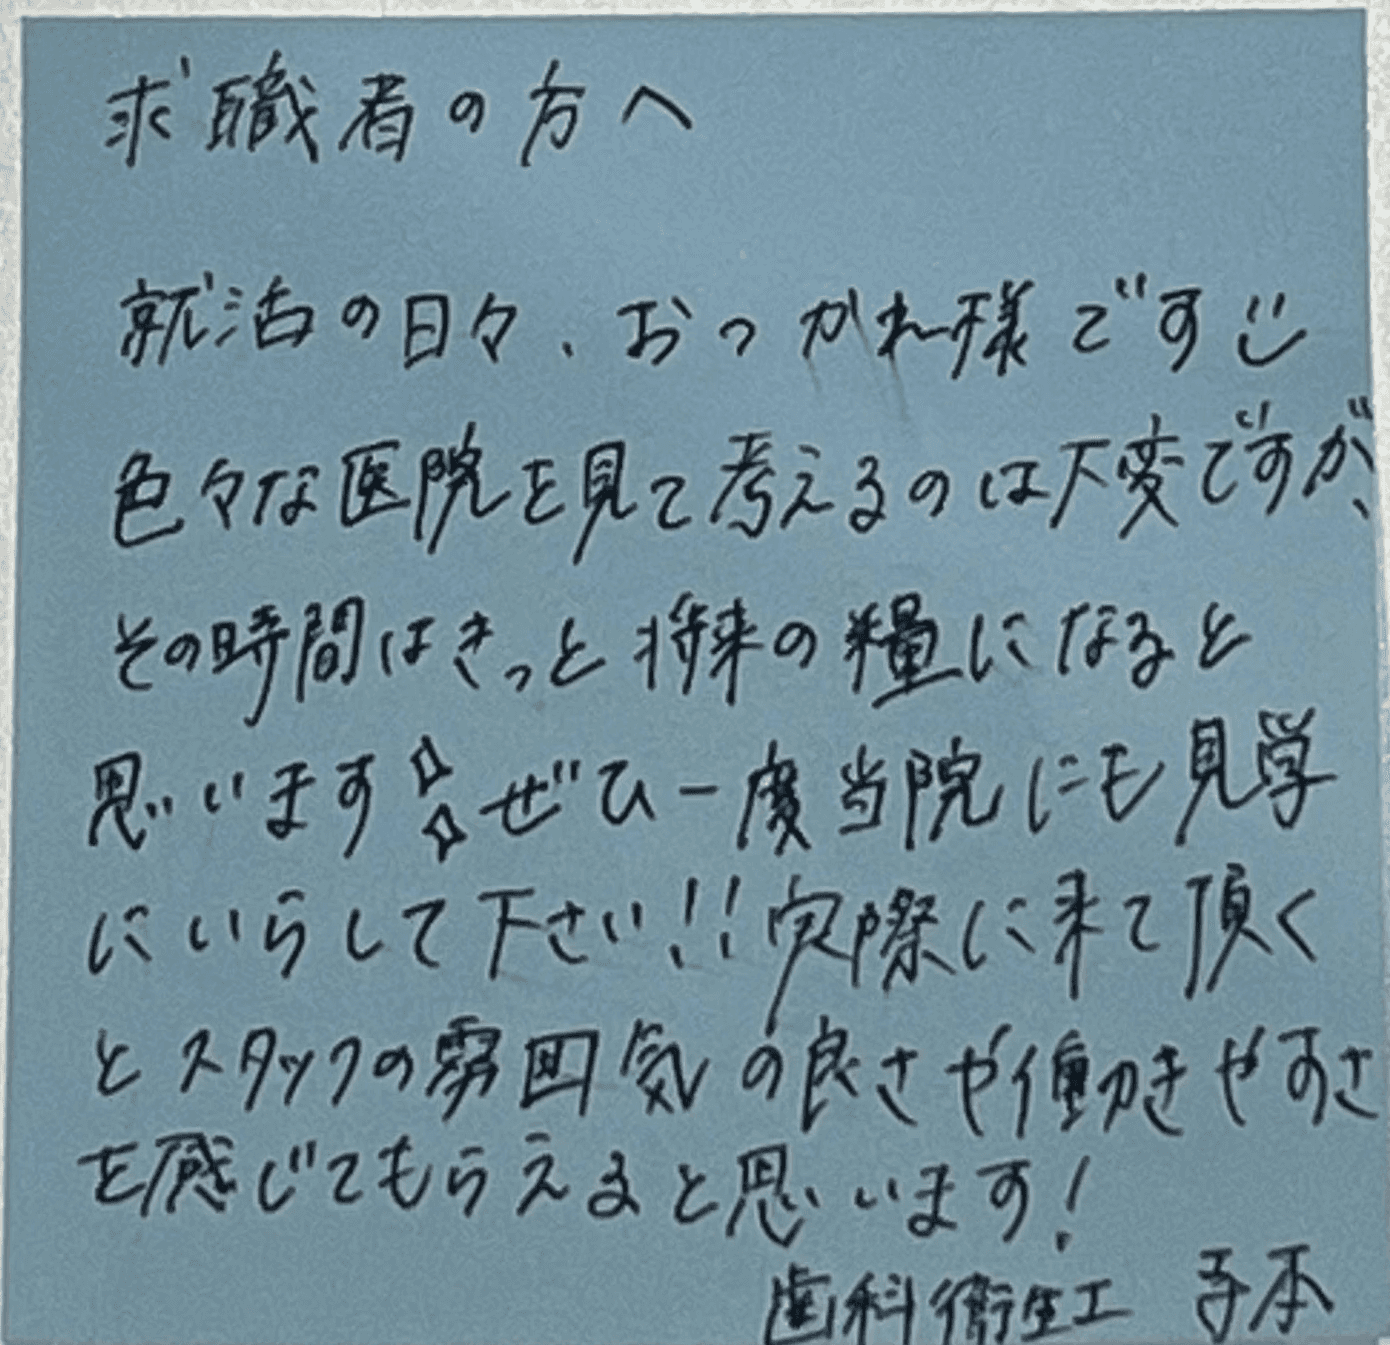 求職者の方へ
就活の日々、おつかれ様です
色々な医院を見て考えるのは大変ですが、
その時間はきっと将来の糧になると
思います ぜひ一度当院にも見学
にいらして下さい!!実際に来て頂く
とスタッフの雰囲気の良さや働きやすさ
を感じてもらえると思います!
歯科衛生士 寺本